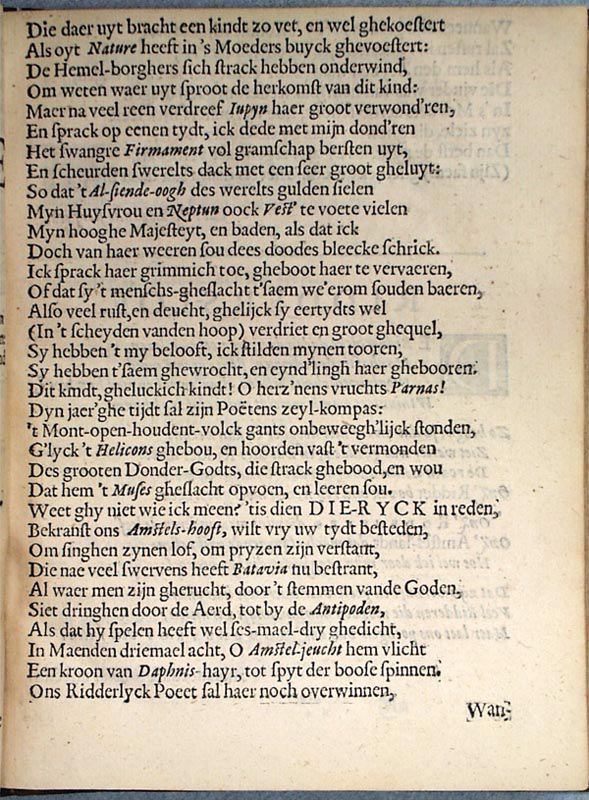 Die daer uyt bracht een kindt zo vet, en wel ghekoestert
Als oyt Nature heeft in 's Moeders buyck ghevoestert:
De Hemel-borghers sich strack hebben onderwind,
Om weten waer uyt sproot de herkomst van dit kind:
Maer na veel reen verdreef Iupyn haer groot verwond'ren,
En sprack op eenen tydt, ick dede met mijn dond'ren
Het swangre Firmament vol gramschap bersten uyt,
En scheurden swerelts dack met een seer groot gheluyt:
So dat 't Al-siende-oogh des werelts gulden sielen
Myn Huysvrou en Neptun oock Vest' te voete vielen
Myn hooghe Majesteyt, en baden, als dat ick
Doch van haer weeren sou dees doodes bleecke schrick.
Ick sprack haer grimmich toe, gheboot haer te vervaeren,
Of dat sy 't menschs-gheslacht t'saem we'erom souden baeren,
Also veel rust, en deucht, ghelijck sy eertydts wel
(In 't scheyden vanden hoop) verdriet en groot ghequel,
Sy hebben 't my belooft, ick stilden mynen tooren,
Sy hebben t'saem ghewrocht, en eynd'lingh haer ghebooren:
Dit kindt, gheluckich kindt! O herz'nens vruchts Parnas!
Dyn jaer'ghe tijdt sal zijn Poëtens zeyl-kompas:
't Mont-open-houdent-volck gants onbeweegh'lijck stonden,
G'lyck 't Helicons ghebou, en hoorden vast 't vermonden
Des grooten Donder-Godts, die strack ghebood, en wou
Dat hem 't Muses gheslacht opvoen, en leeren sou.
Weet ghy niet wie ick meen? 'tis dien DIE-RYCK in reden,
Bekranst ons Amstels-hooft, wilt vry uw tydt besteden,
Om singhen zynen lof, om pryzen zijn verstant,
Die nae veel swervens heeft Batavia nu bestrant,
Al waer men zijn gherucht, door 't stemmen vande Goden,
Siet dringhen door de Aerd, tot by de Antipoden,
Als dat hy spelen heeft wel ses-mael-dry ghedicht,
In Maenden driemael acht, O Amstel-jeucht hem vlicht
Een kroon van Daphnis-hayr, tot spyt der boose spinnen:
Ons Ridderlyck Poeet sal haer noch overwinnen,
Wan-